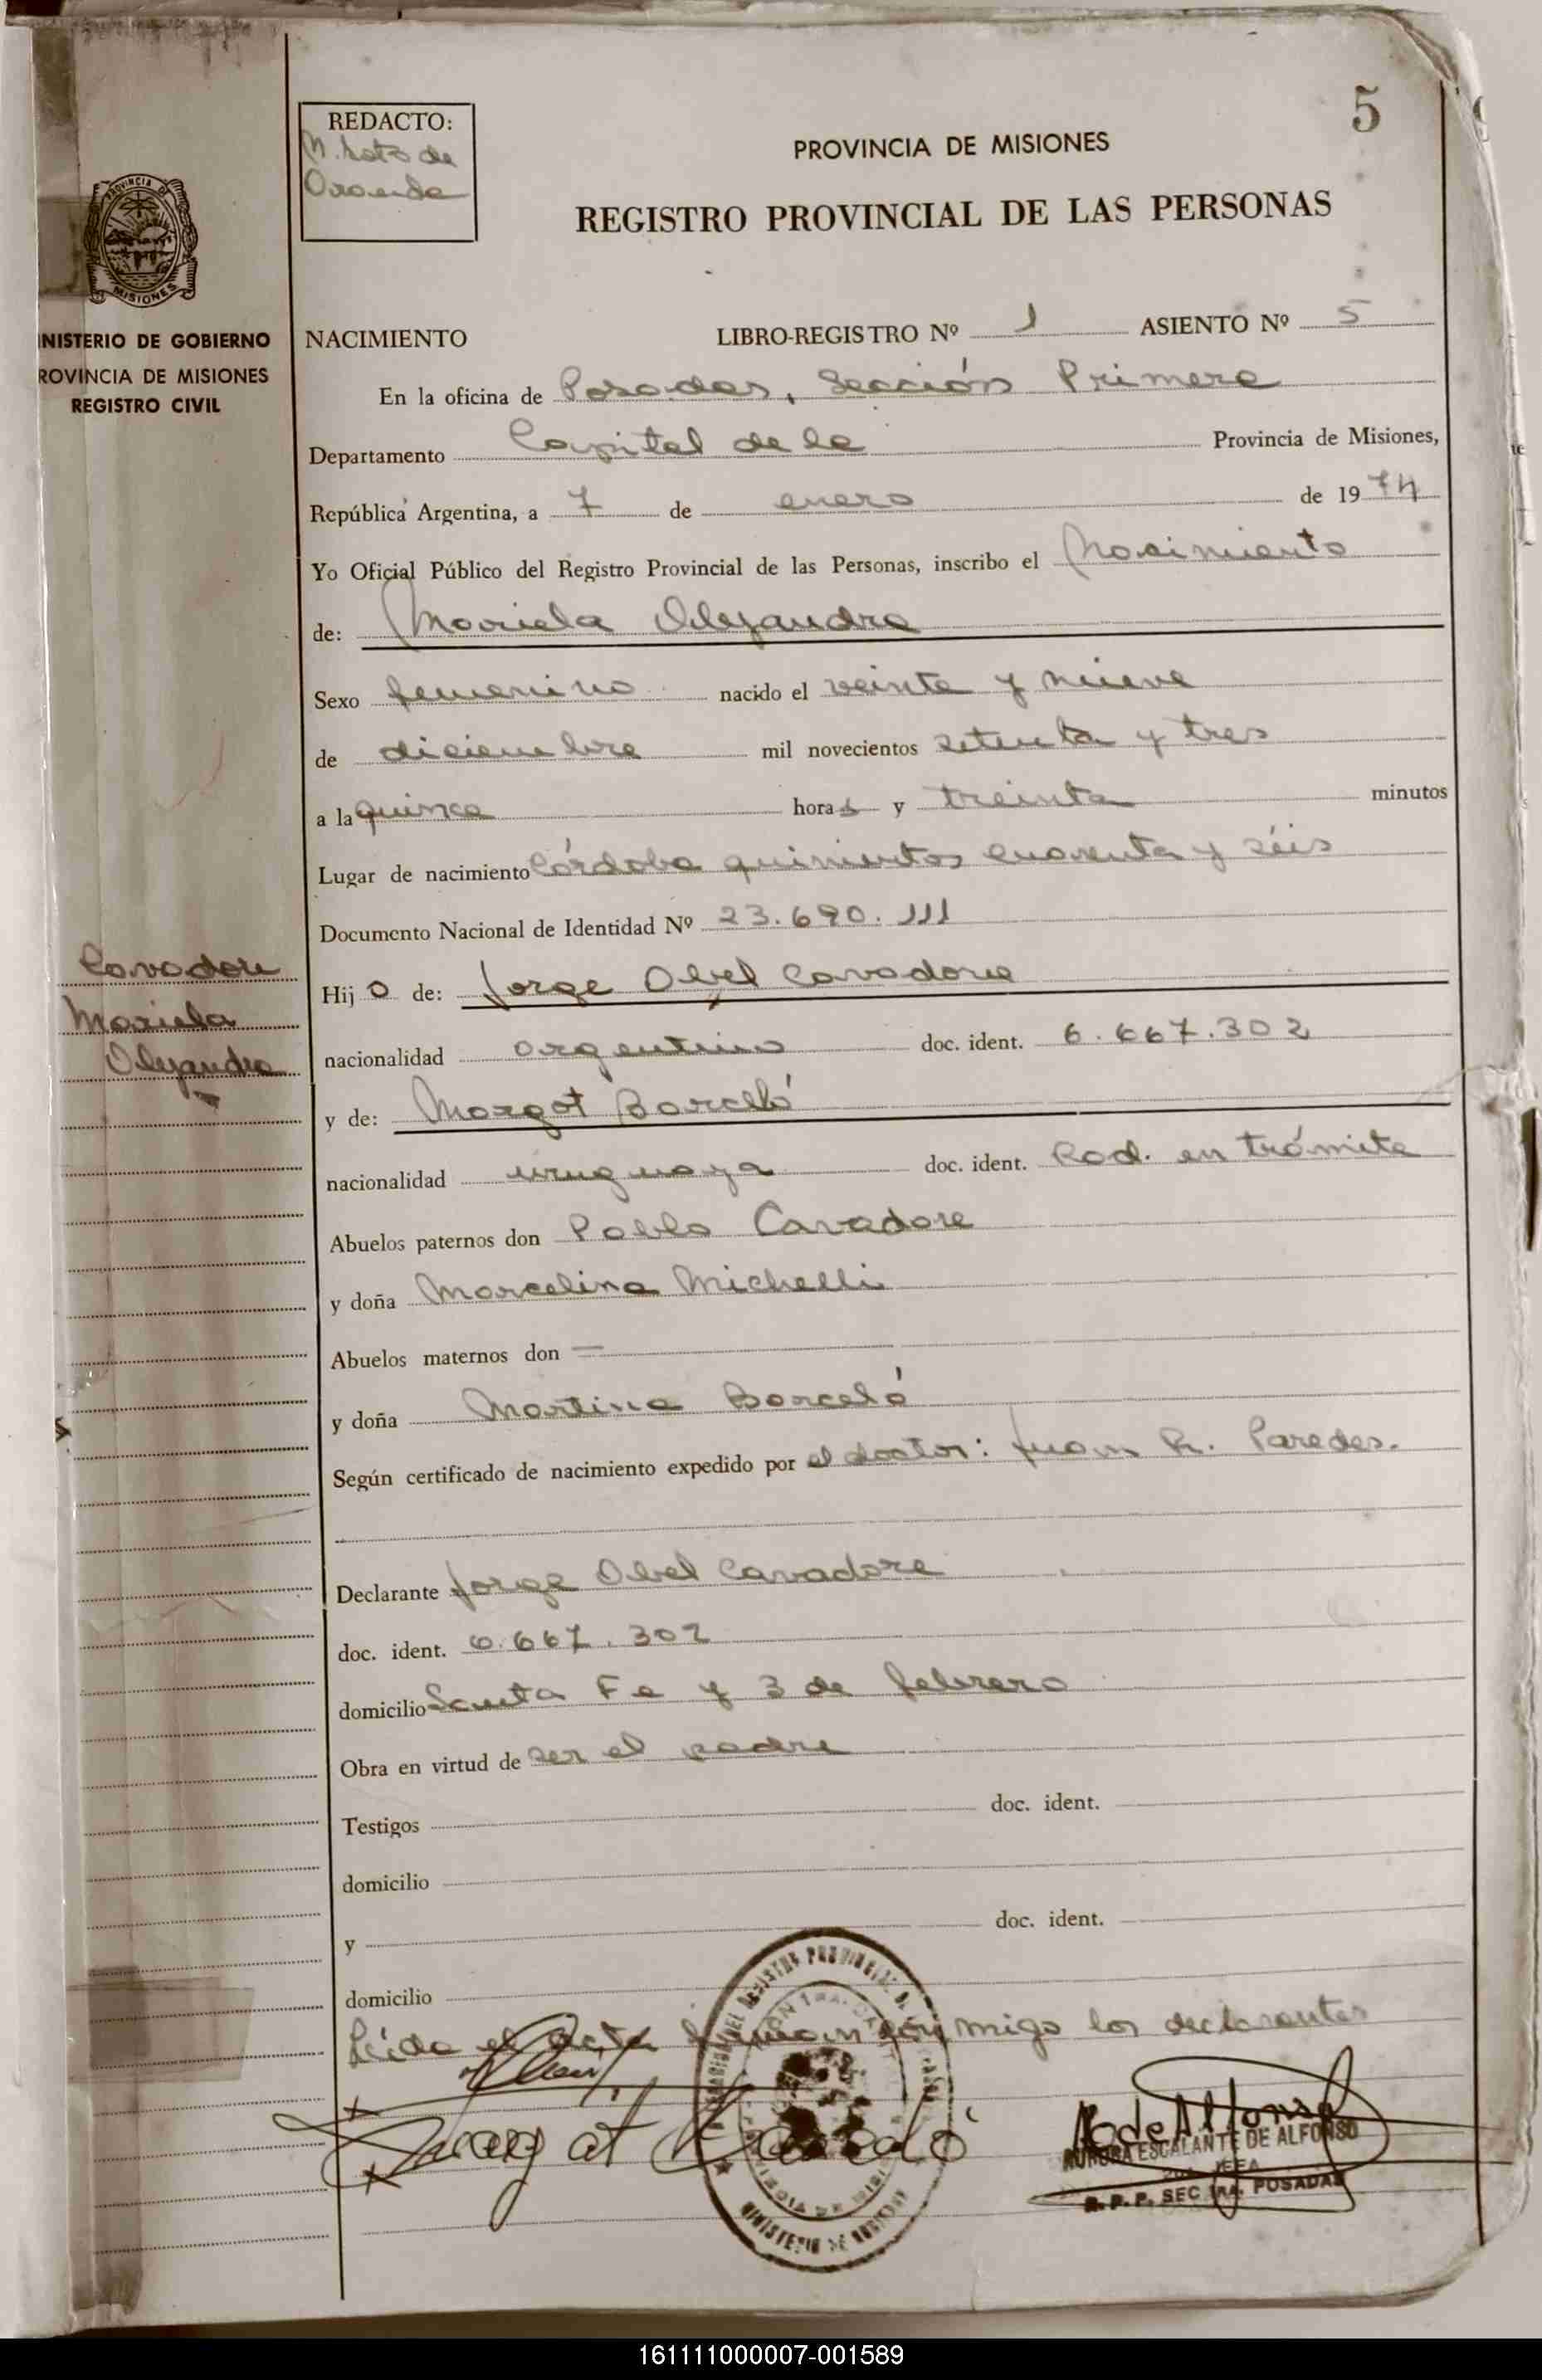 5
REDACTO:
M. Soto de
PROVINCIA DE MISIONES
REGISTRO PROVINCIAL DE LAS PERSONAS
PROVINCIA DE
MISIONES
NISTERIO DE GOBIERNO
ROVINCIA DE MISIONES
REGISTRO CIVIL
NACIMIENTO LIBRO-REGISTRO Nº 1 ASIENTO Nº 5
En la oficina de Posadas, Sección Primera
Departamento Capital de la Provincia de Misiones,
República Argentina, a 7 de enero de 1974
Yo Oficial Público del Registro Provincial de las Personas, inscribo el Nacimiento
de: Mariela Alejandra
Sexo femenino nacido el veinte y nueve
de diciembre mil novecientos setenta y tres
a la quince horas y treinta minutos
Lugar de nacimiento Córdoba quinientos cuarenta y séis
Documento Nacional de Identidad Nº 23.690.111
Cavadore
Mariela
Alejandra
Hijo de: Jorge Abel Cavadore
nacionalidad argentino doc. ident. 6.667.302
y de: Margot Barceló
nacionalidad uruguaya doc. ident. Rad. en trámite
Abuelos paternos don Pablo Cavadore
y doña Marcelina Michelli
Abuelos maternos don —
y doña Martina Barceló
Según certificado de nacimiento expedido por el doctor: Juan R. Paredes.
Declarante Jorge Abel Cavadore
doc. ident. 6.667.302
domicilio Santa Fe y 3 de febrero
Obra en virtud de ser el padre
Testigos doc. ident.
domicilio
y doc. ident.
domicilio
Leída el acta firman conmigo los declarantes
Margot Barceló
A de Alfonso
AURORA ESCALANTE DE ALFONSO
JEFA
R. P. P. SEC 1RA. POSADAS
MINISTERIO DE GOBIERNO
161111000007-001589